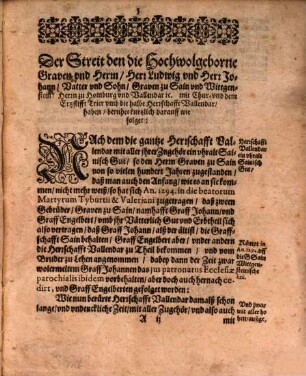 1
Der Streit den die Hochwolgeborne
Graven vnd Herrn / Herr Ludwig vnd Herr Jo-
hann / Vatter vnd Sohn / Graven zu Sain vnd Wittgen-
stein / Herrn zu Homburg vnd Vallendar ꝛc. mit Chur- vnd dem
Ertzstifft Trier vmb die halbe Herrschafft Vallendar /
haben / beruhet kürtzlich darauff wie
folget:
NAch dem die gantze Herrschafft Vall-
endar mit aller jhrer Zugehör ein vhralt Sai-
nisch Gut / so den Herrn Graven zu Sain
von so vielen hundert Jahren zugestanden /
daß man auch den Anfang / wie es an sie kom-
men / nicht mehr weiß / so hat sich An. 1294. in die beatorum
Martyrum Tyburtii & Valeriani zugetragen / daß zween
Gebrüder / Graven zu Sain / namhafft Graff Johann / vnd
Graff Engelbert / vmb jhr Vätterlich Gut vnd Erbtheil sich
also vertragen / daß Graff Johann / alß der ältist / die Graff-
schafft Sain behalten / Graff Engelbert aber / vnder andern
die Herrschafft Vallendar zu Theil bekommen / vnd von dem
Bruder zu Lehen angenommen / dabey dann der Zeit zwar
wolermeltem Graff Johannen das jus patronatus Ecclesiæ
parochialis ibidem vorbehalten / aber doch auch hernach ce-
dirt / vnd Graff Engelberten gefolget worden:
Wie nun berürte Herrschafft Vallendar damalß schon
lange / vnd vndenckliche Zeit / mit aller Zugehör / vnd also auch
A ij
mit
Herrschafft
Vallendar
ein vhralt
Sainisch
Gut /
Kömpt in
An. 1294. an
die Sain
Wittgen-
steinische
Und zwar
mit aller ho-